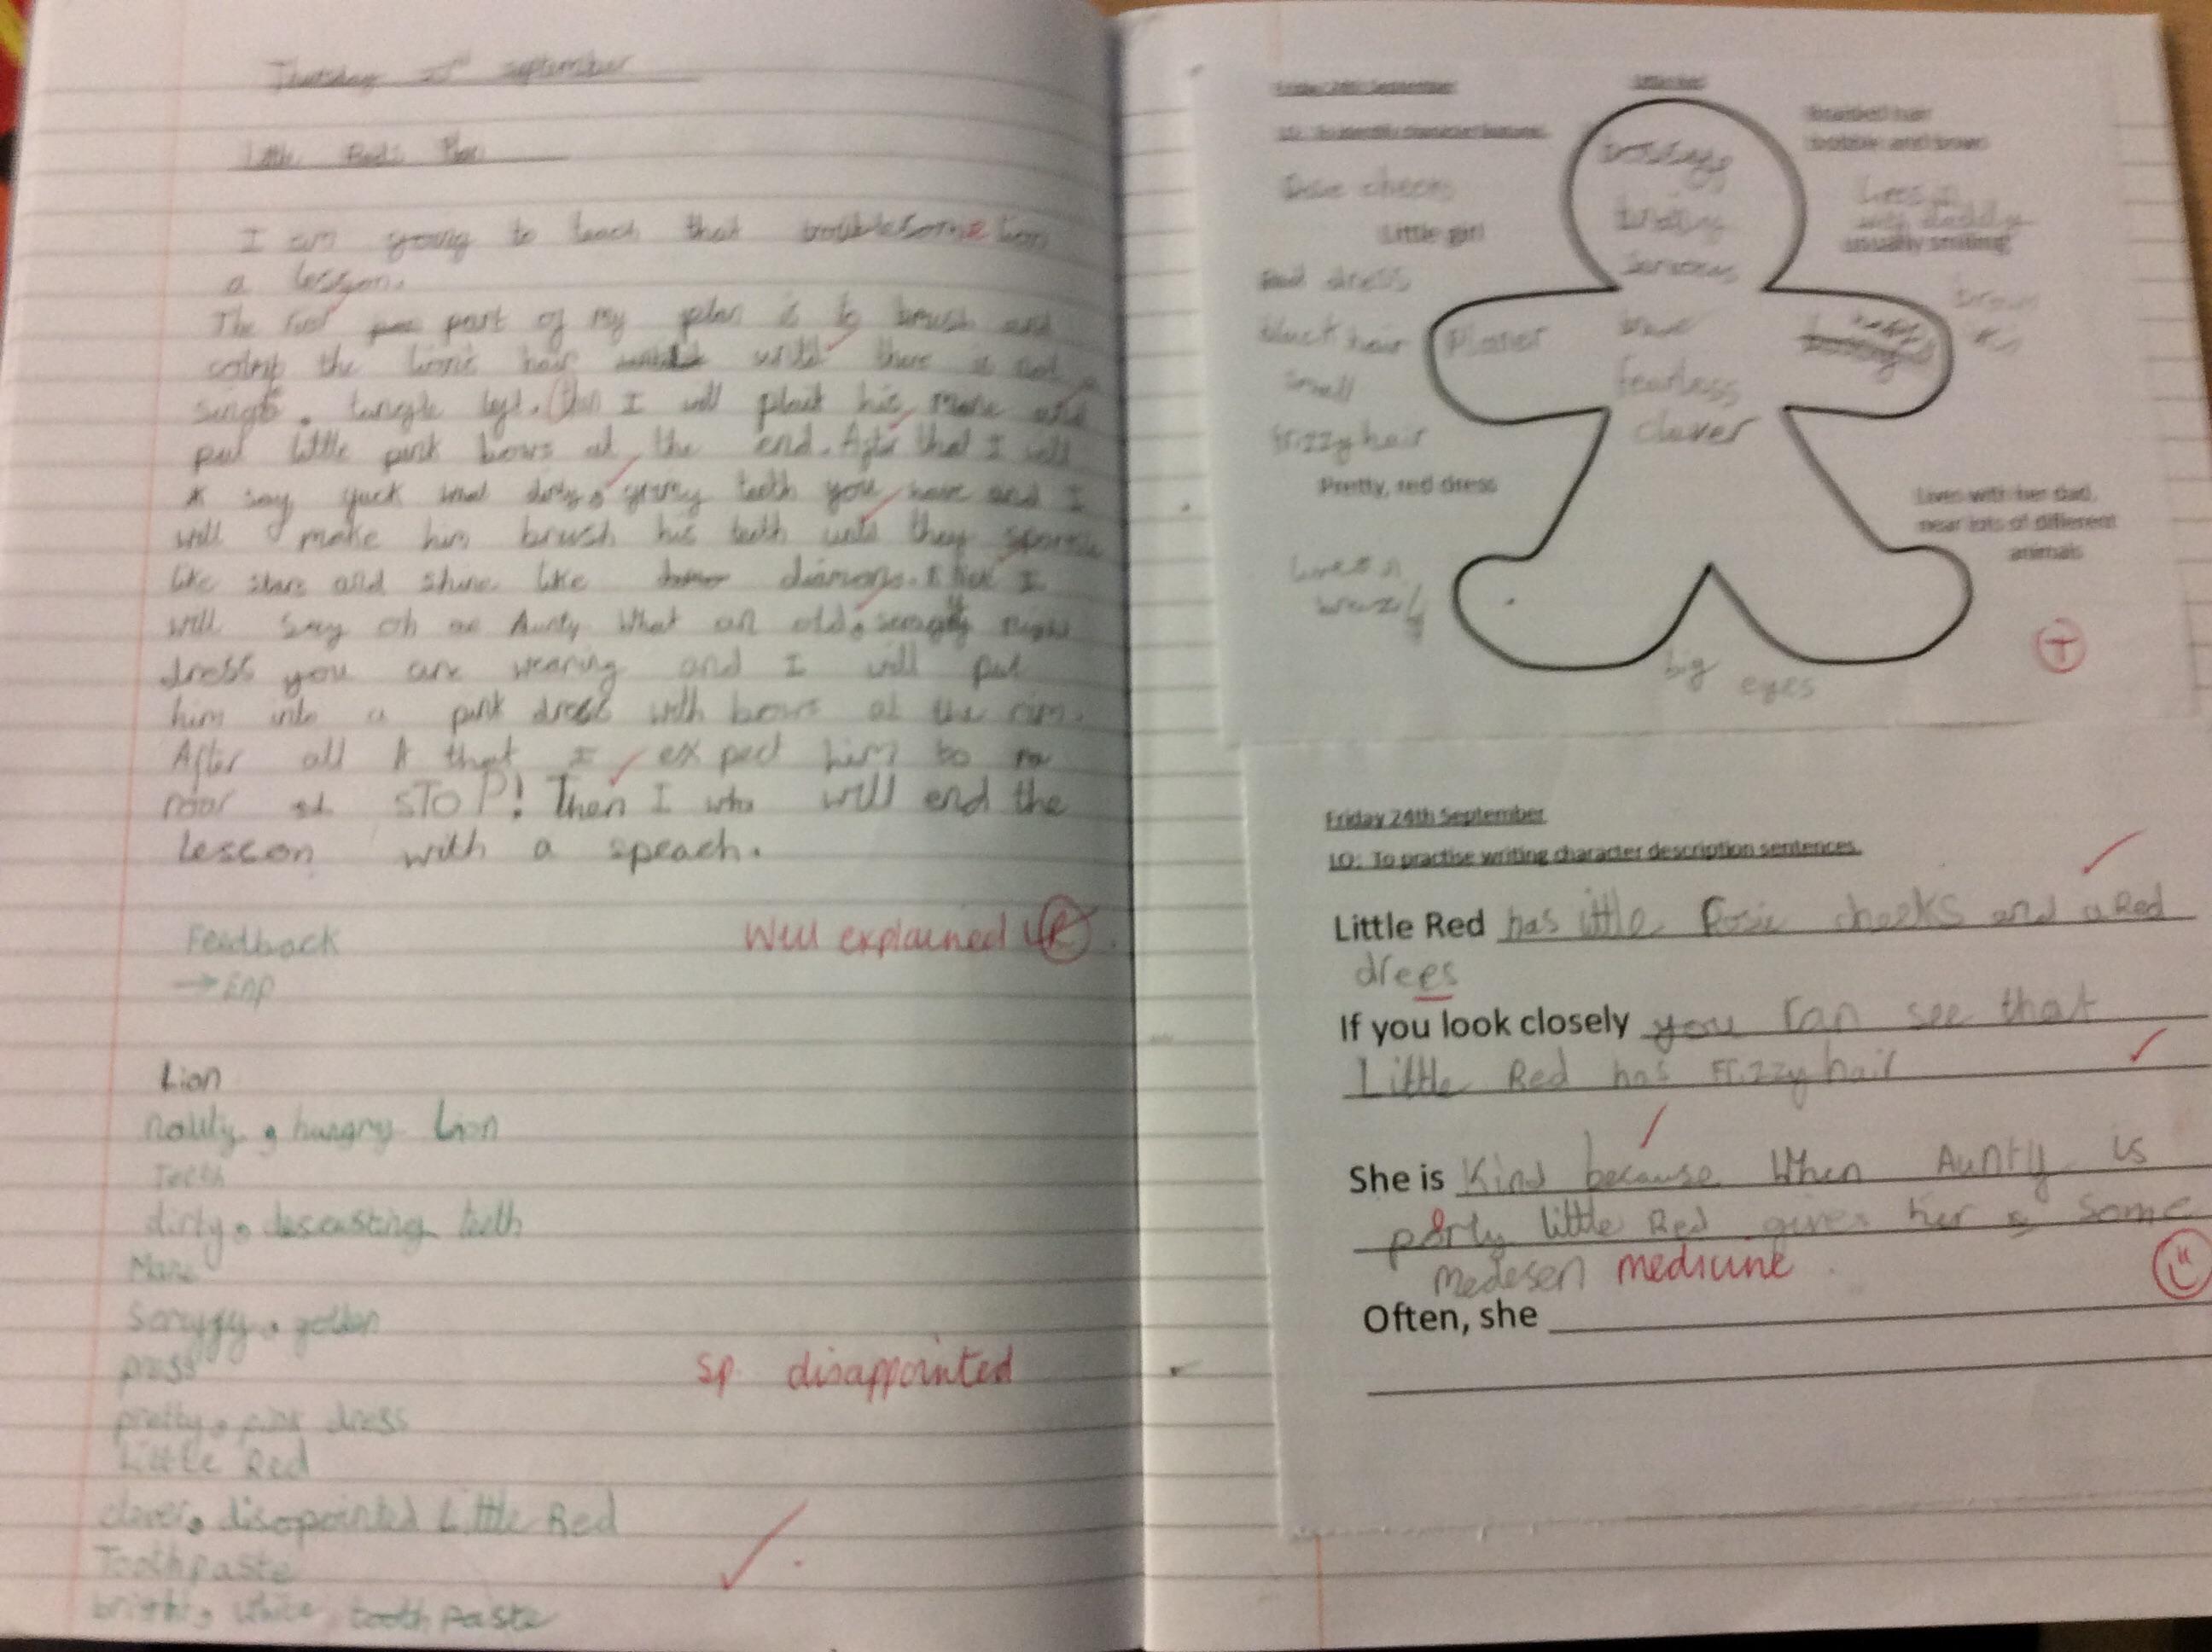 Thursday September
Little Red's Plan
I am going to teach that troublesome lion
a lesson.
The first part of my plan is to brush and
the lion's hair until there is not
single tangle left. Then I will plait his mane and
put little pink bows at the end. After that I will
say yuck what dirty, grimy teeth you have and I
will make him brush his teeth until they sparkle
like stars and shine like I
will say oh Aunty what an old, scraggly night
dress you are wearing and I will put
him into a pink dress with bows at the rim.
After all that I expect him to
roar STOP! Then I will end the
lesson with a speach.
Well explained
Feedback
Lion
hungry Lion
Teeth
dirty, descusting teeth
Mane
golden
sp. disappointed
pretty, pink dress
Little Red
clever, disopointed Little Red
Toothpaste
bright, white toothpaste
Friday 24th September
LO: To identify character features
Little Red
Braided hair
bobble and bows
cheeks
Little girl
Lives in
with daddy
usually smiling
red dress
black hair
small
frizzy hair
Pretty, red dress
Planer
serious
brave
fearless
clever
brown
Lives with her dad,
near lots of different
animals
Lives n
brazil
big eyes
T
Friday 24th September
LO: To practise writing character description sentences.
Little Red has little Rosie cheeks and a Red
drees
If you look closely you can see that
Little Red has Frizzy hair
She is Kind because When Aunty is
porly little Red gives her some
medesen medicine
Often, she